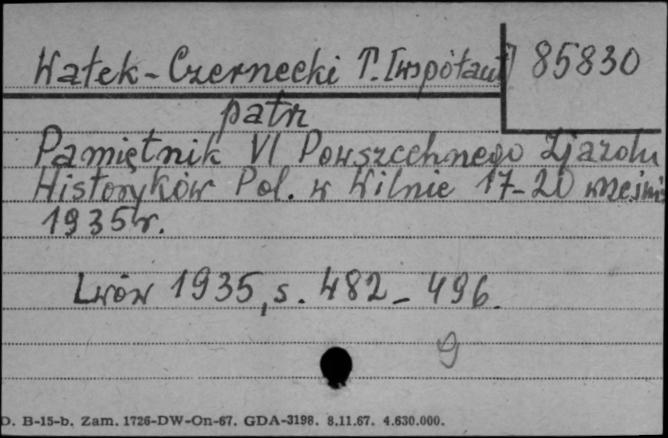 Wałek-Czernecki T. [współaut] 85830
patrz
Pamiętnik VI Powszechnego Zjazdu
Historyków Pol. w Wilnie 17-20 wrześni
1935 r.
Lwów 1935, s. 482-496.
9
D. B-15-b. Zam. 1726-DW-On-67. GDA-3198. 8.11.67. 4.630.000.